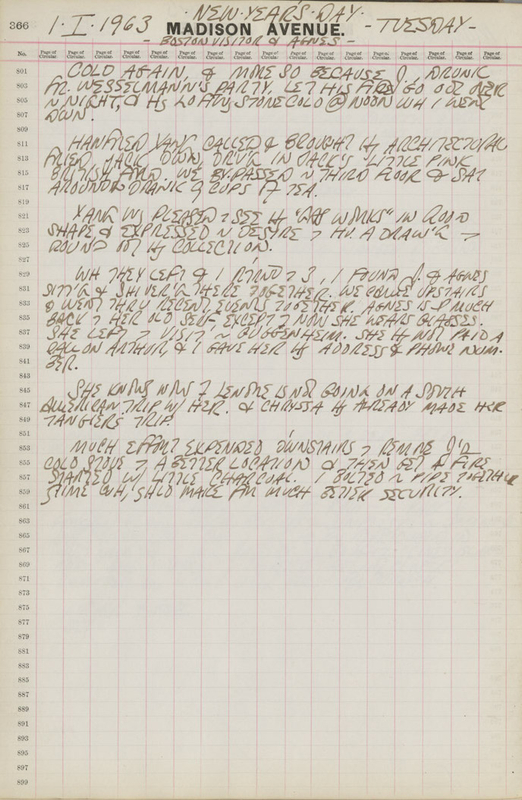 366
1·I·1963 ·NEW·YEARS·DAY· -TUESDAY-
MADISON AVENUE.
-BOSTON VISITOR & AGNES-
No. Page of Circular. Page of Circular. Page of Circular. Page of Circular. Page of Circular. Page of Circular. Page of Circular. Page of Circular. Page of Circular. Page of Circular. Page of Circular. Page of Circular. Page of Circular. Page of Circular. Page of Circular. Page of Circular.
801 COLD AGAIN, & MORE SO BECAUSE J., DRUNK
803
805 FR. WESSELMANN'S PARTY, LET HIS FIRE GO OUT OVER
N NIGHT, & HS LOFT STONE COLD @ NOON WH I WENT
807 DOWN.
809
811 YANG CALLED & BROUGHT H ARCHITECTURAL
813 FRIEND JACK DOWN, DRV'G IN JACK'S LITTLE PINK
815 BRITISH FORD. WE BY-PASSED N THIRD FLOOR & SAT
817 AROUND & DRANK 9 CUPS F TEA.
819
821 YANG WS PLEASED T SEE H "WORKS" IN GOOD
823 SHAPE & EXPRESSED N DESIRE T HV A DRAW'G T
825 ROUND OUT H COLLECTION.
827
829 WH THEY LEFT & I RTND T 3, I FOUND J. & AGNES
831 SITT'G & SHIVER'G THERE TOGETHER. WE CAME UPSTAIRS
833 & WENT THRU RECENT EVENTS TOGETHER. AGNES IS MUCH
835 BACK T HER OLD SELF EXCEPT T NOW SHE WEARS GLASSES.
837 SHE LEFT T VISIT N GUGGENHEIM. SHE H NOT PAID A
839 CALL ON ARTHUR, & I GAVE HER H ADDRESS & PHONE NUM-
841 BER.
843
845 SHE KNOWS NOW T LENORE IS NOT GOING ON A SOUTH
847 AMERICAN TRIP W/ HER. & CHRYSSA H ALREADY MADE HER
849 TANGIERS TRIP.
851
853 MUCH EFFORT EXPENDED DOWNSTAIRS T REMOVE J'S
855 COLD STOVE T A BETTER LOCATION & THEN GET A FIRE
857 STARTED W/ LITTLE CHARCOAL. I BOLTED N PIPE TOGETHER
859 WH, SHLD MAKE FR MUCH BETTER SECURITY.
861
863
865
867
869
871
873
875
877
879
881
883
885
887
889
891
893
895
897
899